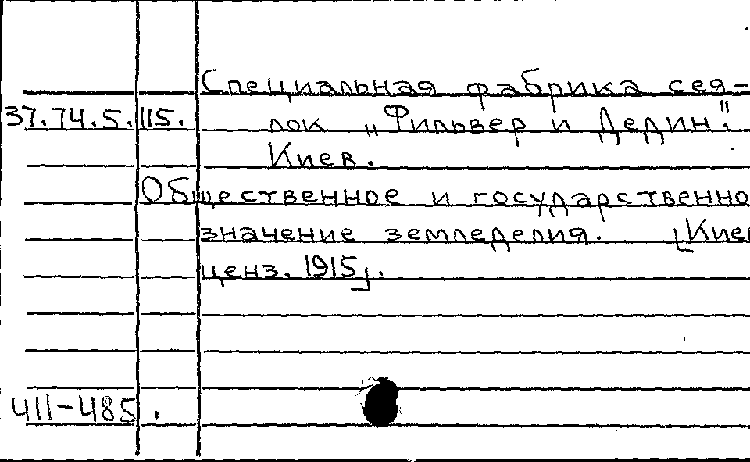 Специальная фабрика сея=
37.74.5.115. лок „Фильвер и Дедин".
Киев.
Общественное и государственно
значение земледелия. [Киев
ценз. 1915].
411-485.